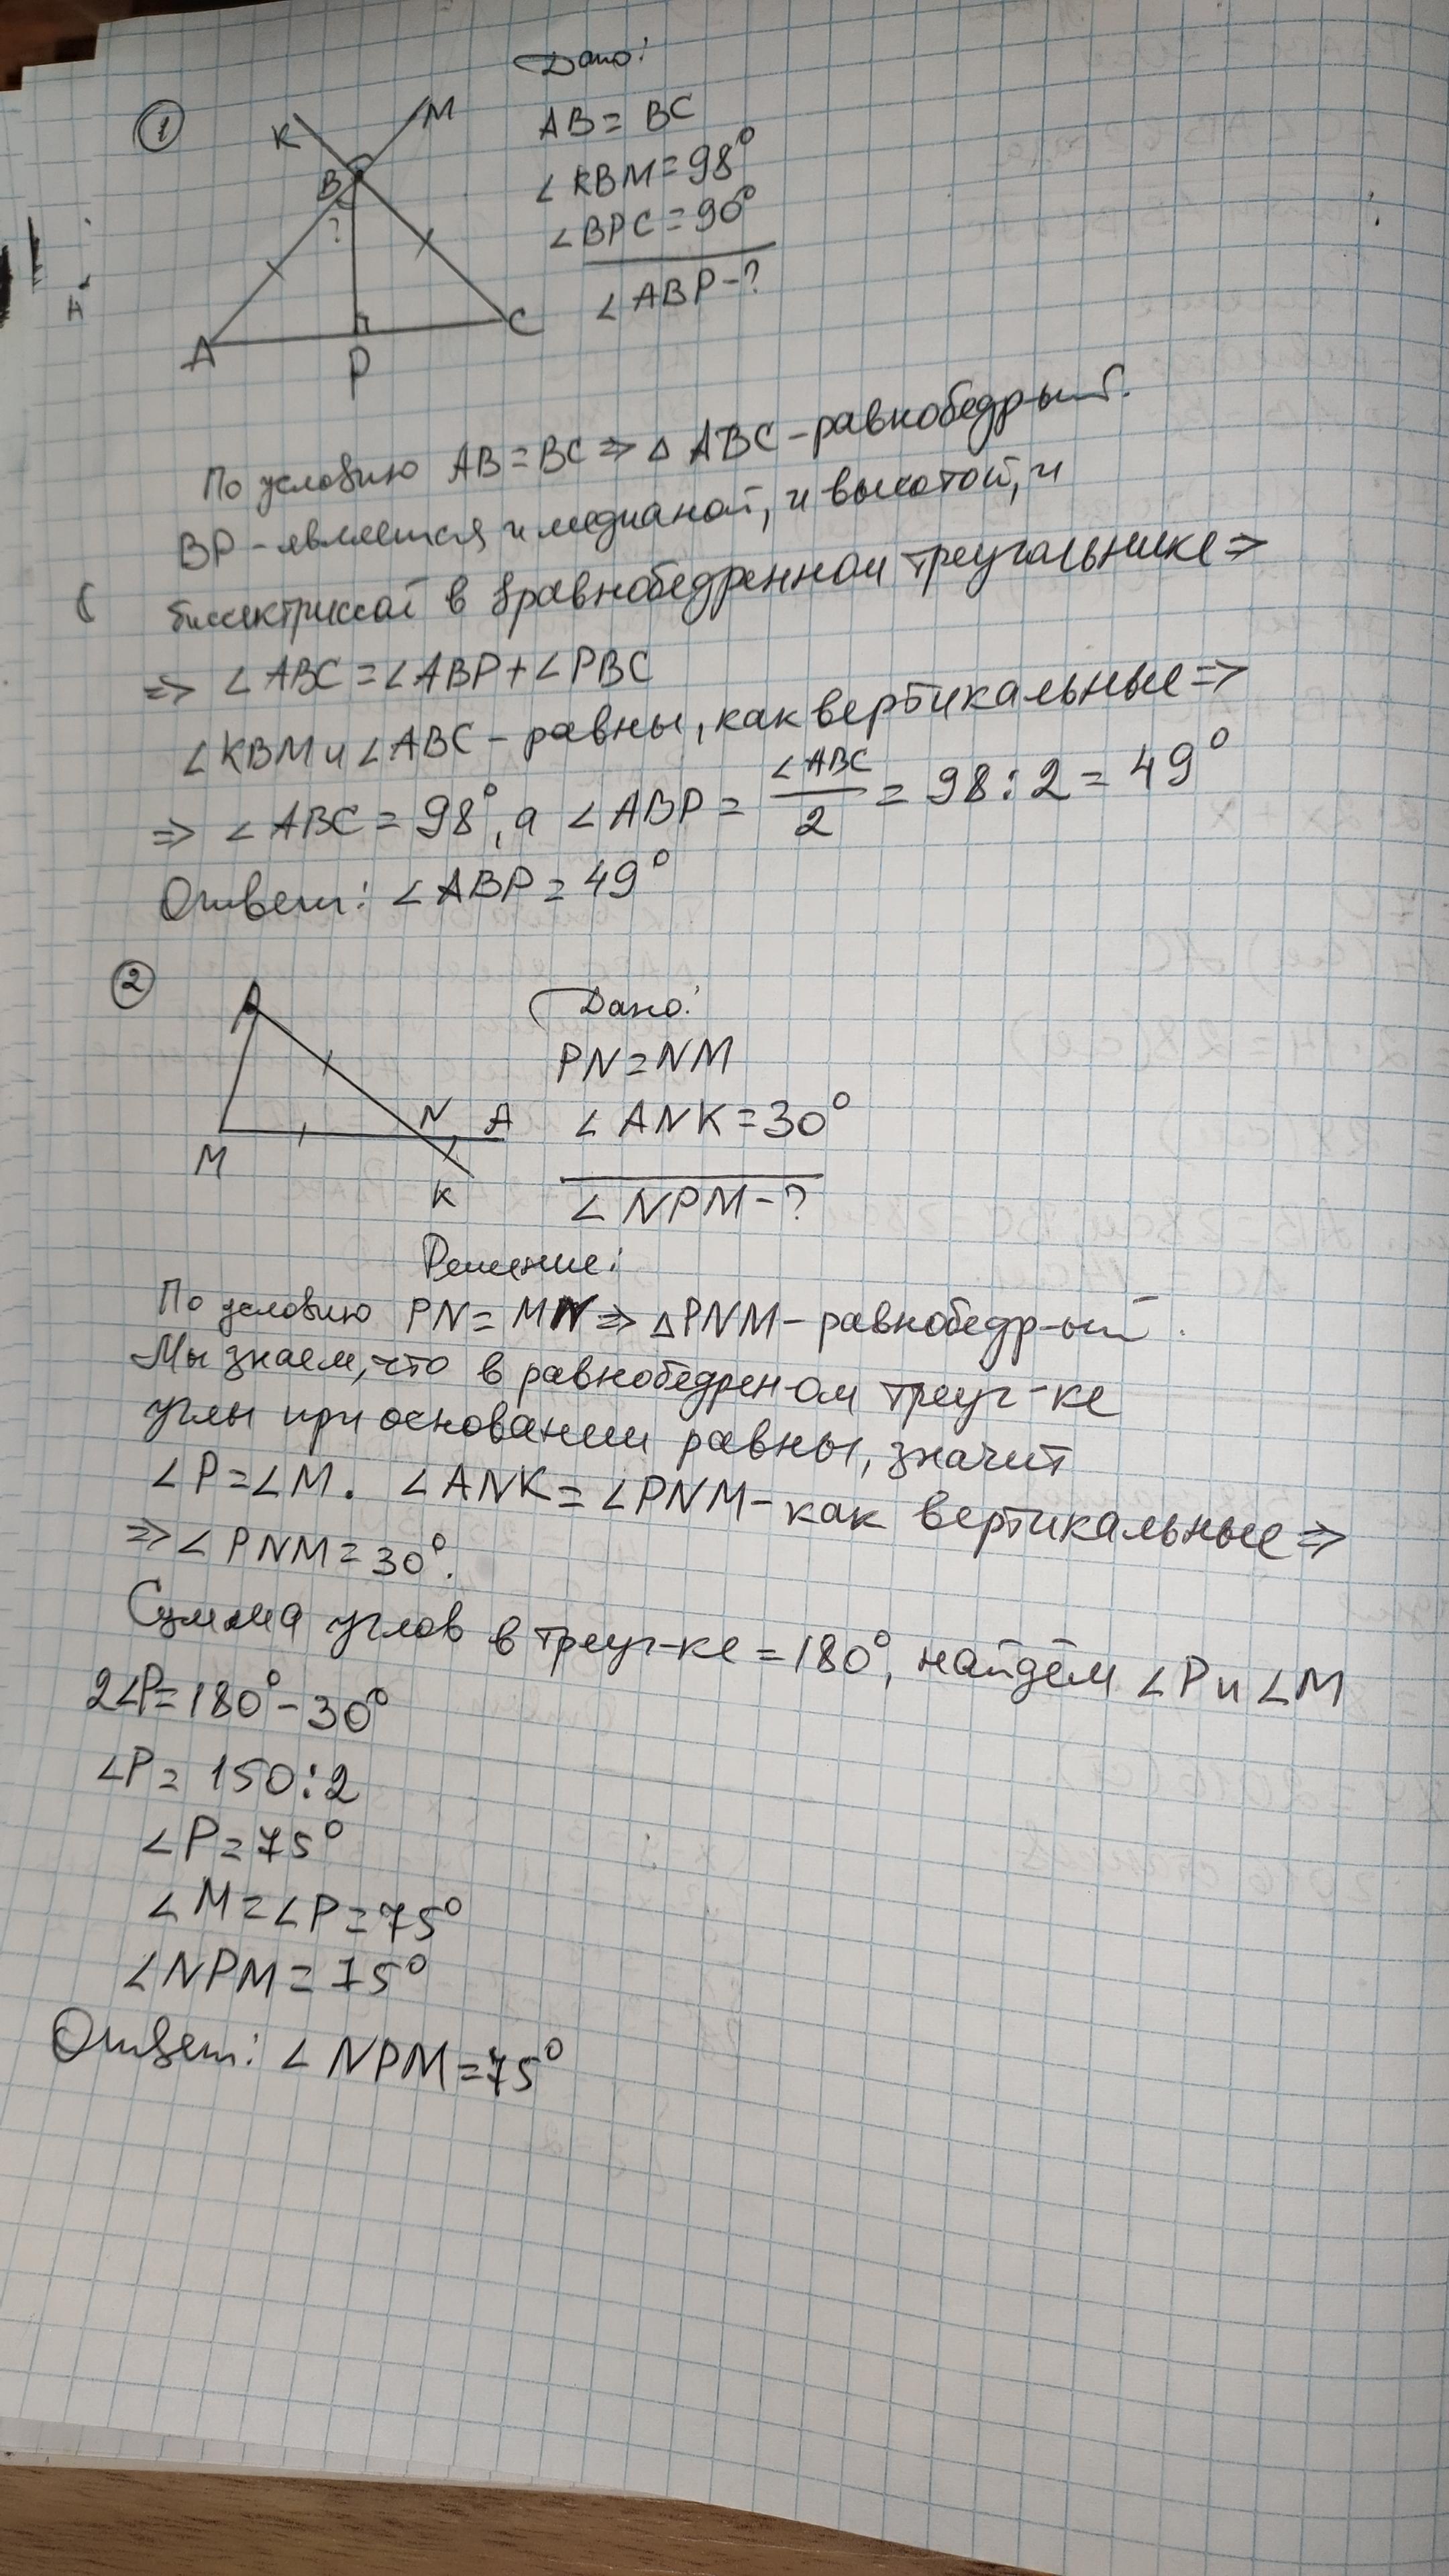 Дано:
①
K
M
B
?
A
P
C
AB = BC
∠KBM = 98°
∠BPC = 90°
∠ABP - ?
H
По условию AB = BC ⇒ △ ABC - равнобедр-ый.
BP - является и медианой, и высотой, и
биссектриссой в равнобедренном треугольнике ⇒
⇒ ∠ABC = ∠ABP + ∠PBC
∠KBM и ∠ABC - равны, как вертикальные ⇒
⇒ ∠ABC = 98°, а ∠ABP = ∠ABC/2 = 98 : 2 = 49°
Ответ: ∠ABP = 49°
②
P
M
N
A
K
Дано:
PN = NM
∠ANK = 30°
∠NPM - ?
Решение:
По условию PN = MN ⇒ △PNM - равнобедр-ый.
Мы знаем, что в равнобедрен-ом треуг-ке
углы при основании равны, значит
∠P = ∠M. ∠ANK = ∠PNM - как вертикальные ⇒
⇒ ∠PNM = 30°.
Сумма углов в треуг-ке = 180°, найдём ∠P и ∠M
2∠P = 180° - 30°
∠P = 150 : 2
∠P = 75°
∠M = ∠P = 75°
∠NPM = 75°
Ответ: ∠NPM = 75°